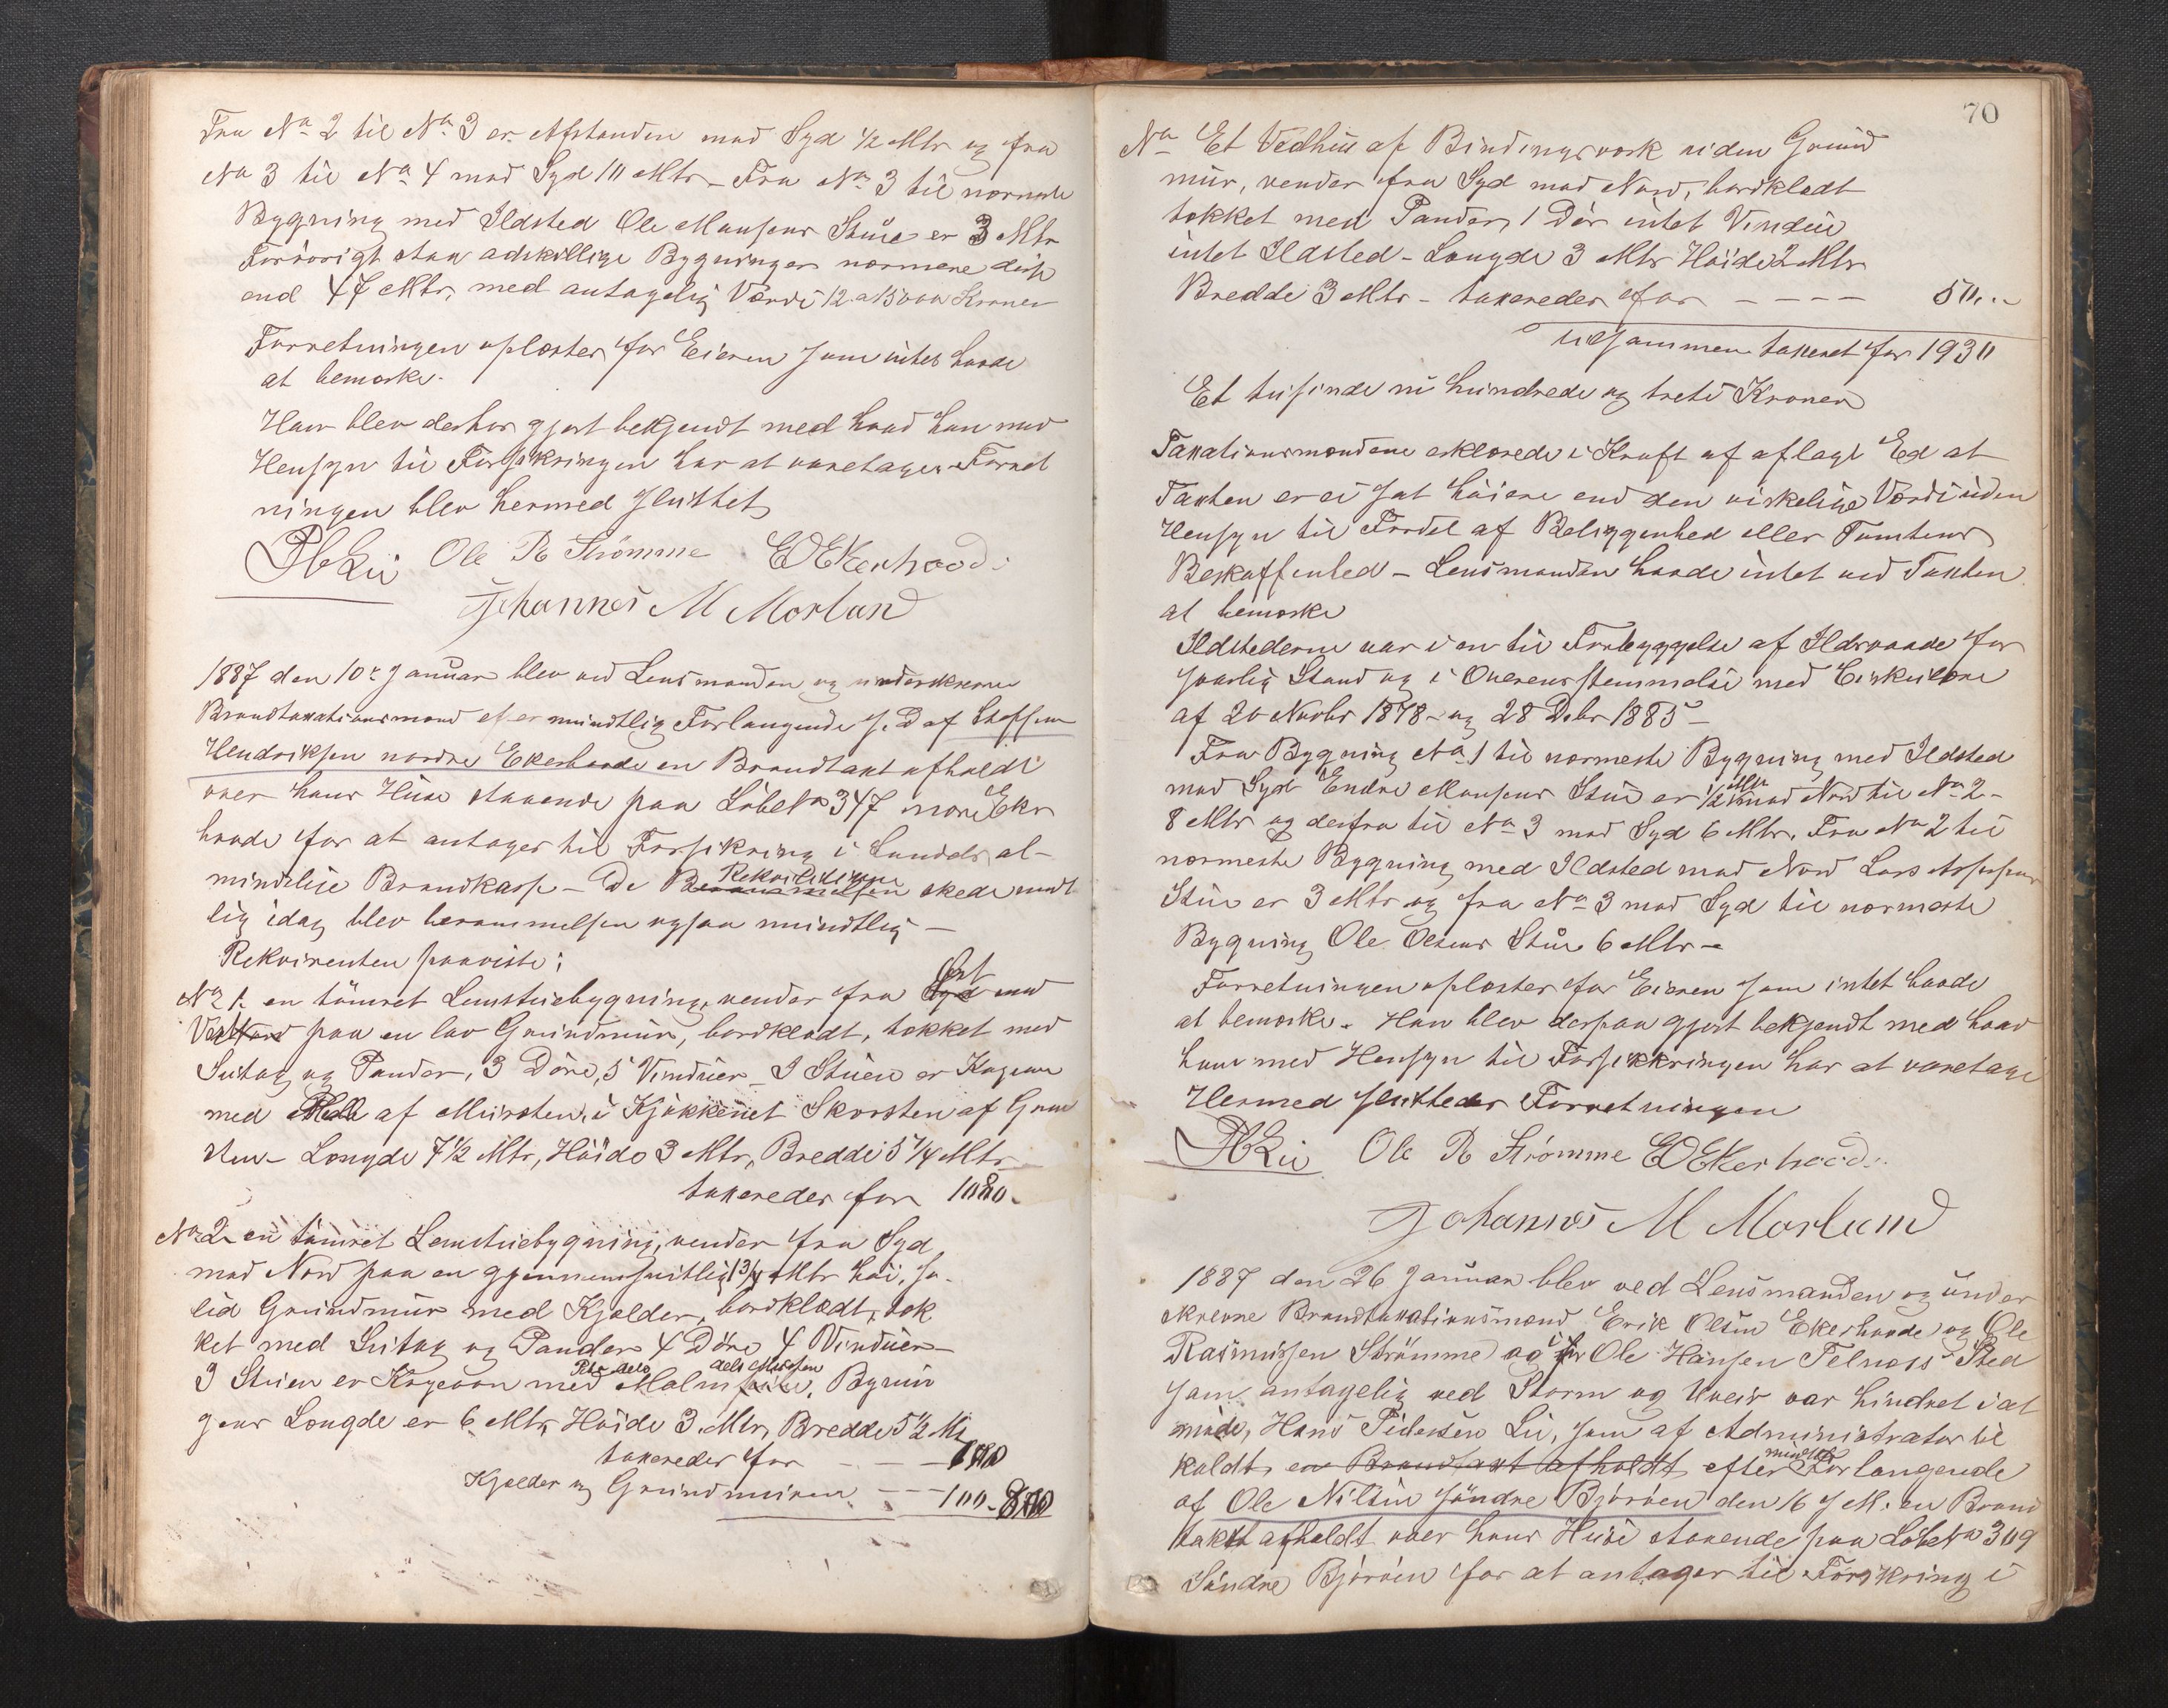 Fra No 2 til No 3 er Afstanden mod Syd 1/2 Mtr og fra
No 3 til No 4 mod Syd 10 Mtr - Fra No 3 til nærmeste
Bygning med Ildsted Ole Monsens Stue er 3 Mtr
Forövrigt staa adskillige Bygninger nærmere disse
end 47 Mtr, med antagelig Værdi 12 a 15000 Kroner
Forretningen oplæstes for Eieren som intet havde
at bemærke.
Han blev derhos gjort bekjendt med hvad han med
Hensyn til Forsikringen har at varetage. Forret
ningen blev hermed sluttet
Ole R Strömme EOEkerhovd
Johannes M Morland
1887 den 10de Januar blev ved Lensmanden og underskrevne
Brandtaxationsmænd efter mundtlig Forlangende s. D af Steffen
Hendriksen nordre Ekerhovde en Brandtaxt afholdt
over hans Huse staaende paa Löbe No 347 nore Eker
hovde for at antages til Forsikring i Landets al-
mindelige Brandkasse - Da Rekvisitionen skede mundt
lig idag blev berammelsen ogsaa mundtlig -
Rekvirenten paaviste:
No 1. en tömret Lemstuebygning, vender fra Öst mod
Vest paa en lav Grundmur, bordklædt, tækket med
Sutag og Pander, 3 Döre, 5 Vinduer - I Stuen er Kogeovn
med af Mursten, i Kjökkenet Skorsten af Graa
sten - Længde 7 1/2 Mtr, Höide 3 Mtr, Bredde 5 1/4 Mtr
taxeredes for 1080.
No 2 en tömret Lemstuebygning, vender fra Syd
mod Nord paa en gjennemsnitlig 1 3/4 Mtr höi, so-
lid Grundmur med Kjelder, bordklædt, tæk
ket med Sutag og Pander 4 Döre 4 Vinduer -
I Stuen er Kogeovn med Rör dels Malm dels Mursten, Bygnin
gens Længde er 6 Mtr, Höide 3 Mtr, Bredde 5 1/2 Mtr
taxeredes for - - - 700
Kjelder og Grundmuren - - - 100 - 800
70
No Et Vedhus af Bindingsværk uden Grund
mur, vender fra Syd mod Nord, bordklædt
tækket med Pander, 1 Dör intet Vindue
intet Ildsted - Længde 3 Mtr Höide 2 Mtr
Bredde 3 Mtr - taxeredes for - - - - 50..
tilsammen taxeret for 1930
Et tusinde ni hundrede og treti Kroner
Taxationsmændene erklærede i Kraft af aflagt Ed at
Taxten er ei sat höiere end den virkelige Værdi uden
Hensyn til Fordel af Beliggenhed eller Tomtens
Beskaffenhed - Lensmanden havde intet ved Taxten
at bemærke
Ildstederne var i en til Forebyggelse af Ildsvaade for
svarlig Stand og i Overensstemmelse med Cirkulære
af 20 Novbr 1878 - og 28 Debr 1885 -
Fra Bygning No 1 til nærmeste Bygning med Ildsted
mod Syd Endre Monsens Stue er 1/2 Mtr mod Nord til No 2 -
8 Mtr og derfra til No 3 mod Syd 6 Mtr. Fra No 2 til
nærmeste Bygning med Ildsted mod Nord Lars
Stue er 3 Mtr og fra No 3 mod Syd til nærmeste
Bygning Ole Olsens Stue 6 Mtr -
Forretningen oplæstes for Eieren som intet havde
at bemærke. Han blev derpaa gjort bekjendt med hvad
han med Hensyn til Forsikkringen har at varetage
Hermed sluttedes Forretningen
Ole R Strömme EOEkerhovd
Johannes M Morland
1887 den 26 Januar blev ved Lensmanden og under
skrevne Brandtaxationsmænd Erik Olsen Ekerhovde og Ole
Rasmussen Strömme og i Ole Hansen Telnæs Sted
som antagelig ved Storm og Uveir var hindret i at
möde, Hans Pedersen Lie, som af Administrator til
kaldt, en Brandtaxt afholdt efter mundtlig Forlangende
af Ole Nilsen söndre Björöen den 16 s M. en Brand
taxt afholdt over hans Huse staaende paa Löbe No 309
Söndre Björöen for at antages til Forsikring i